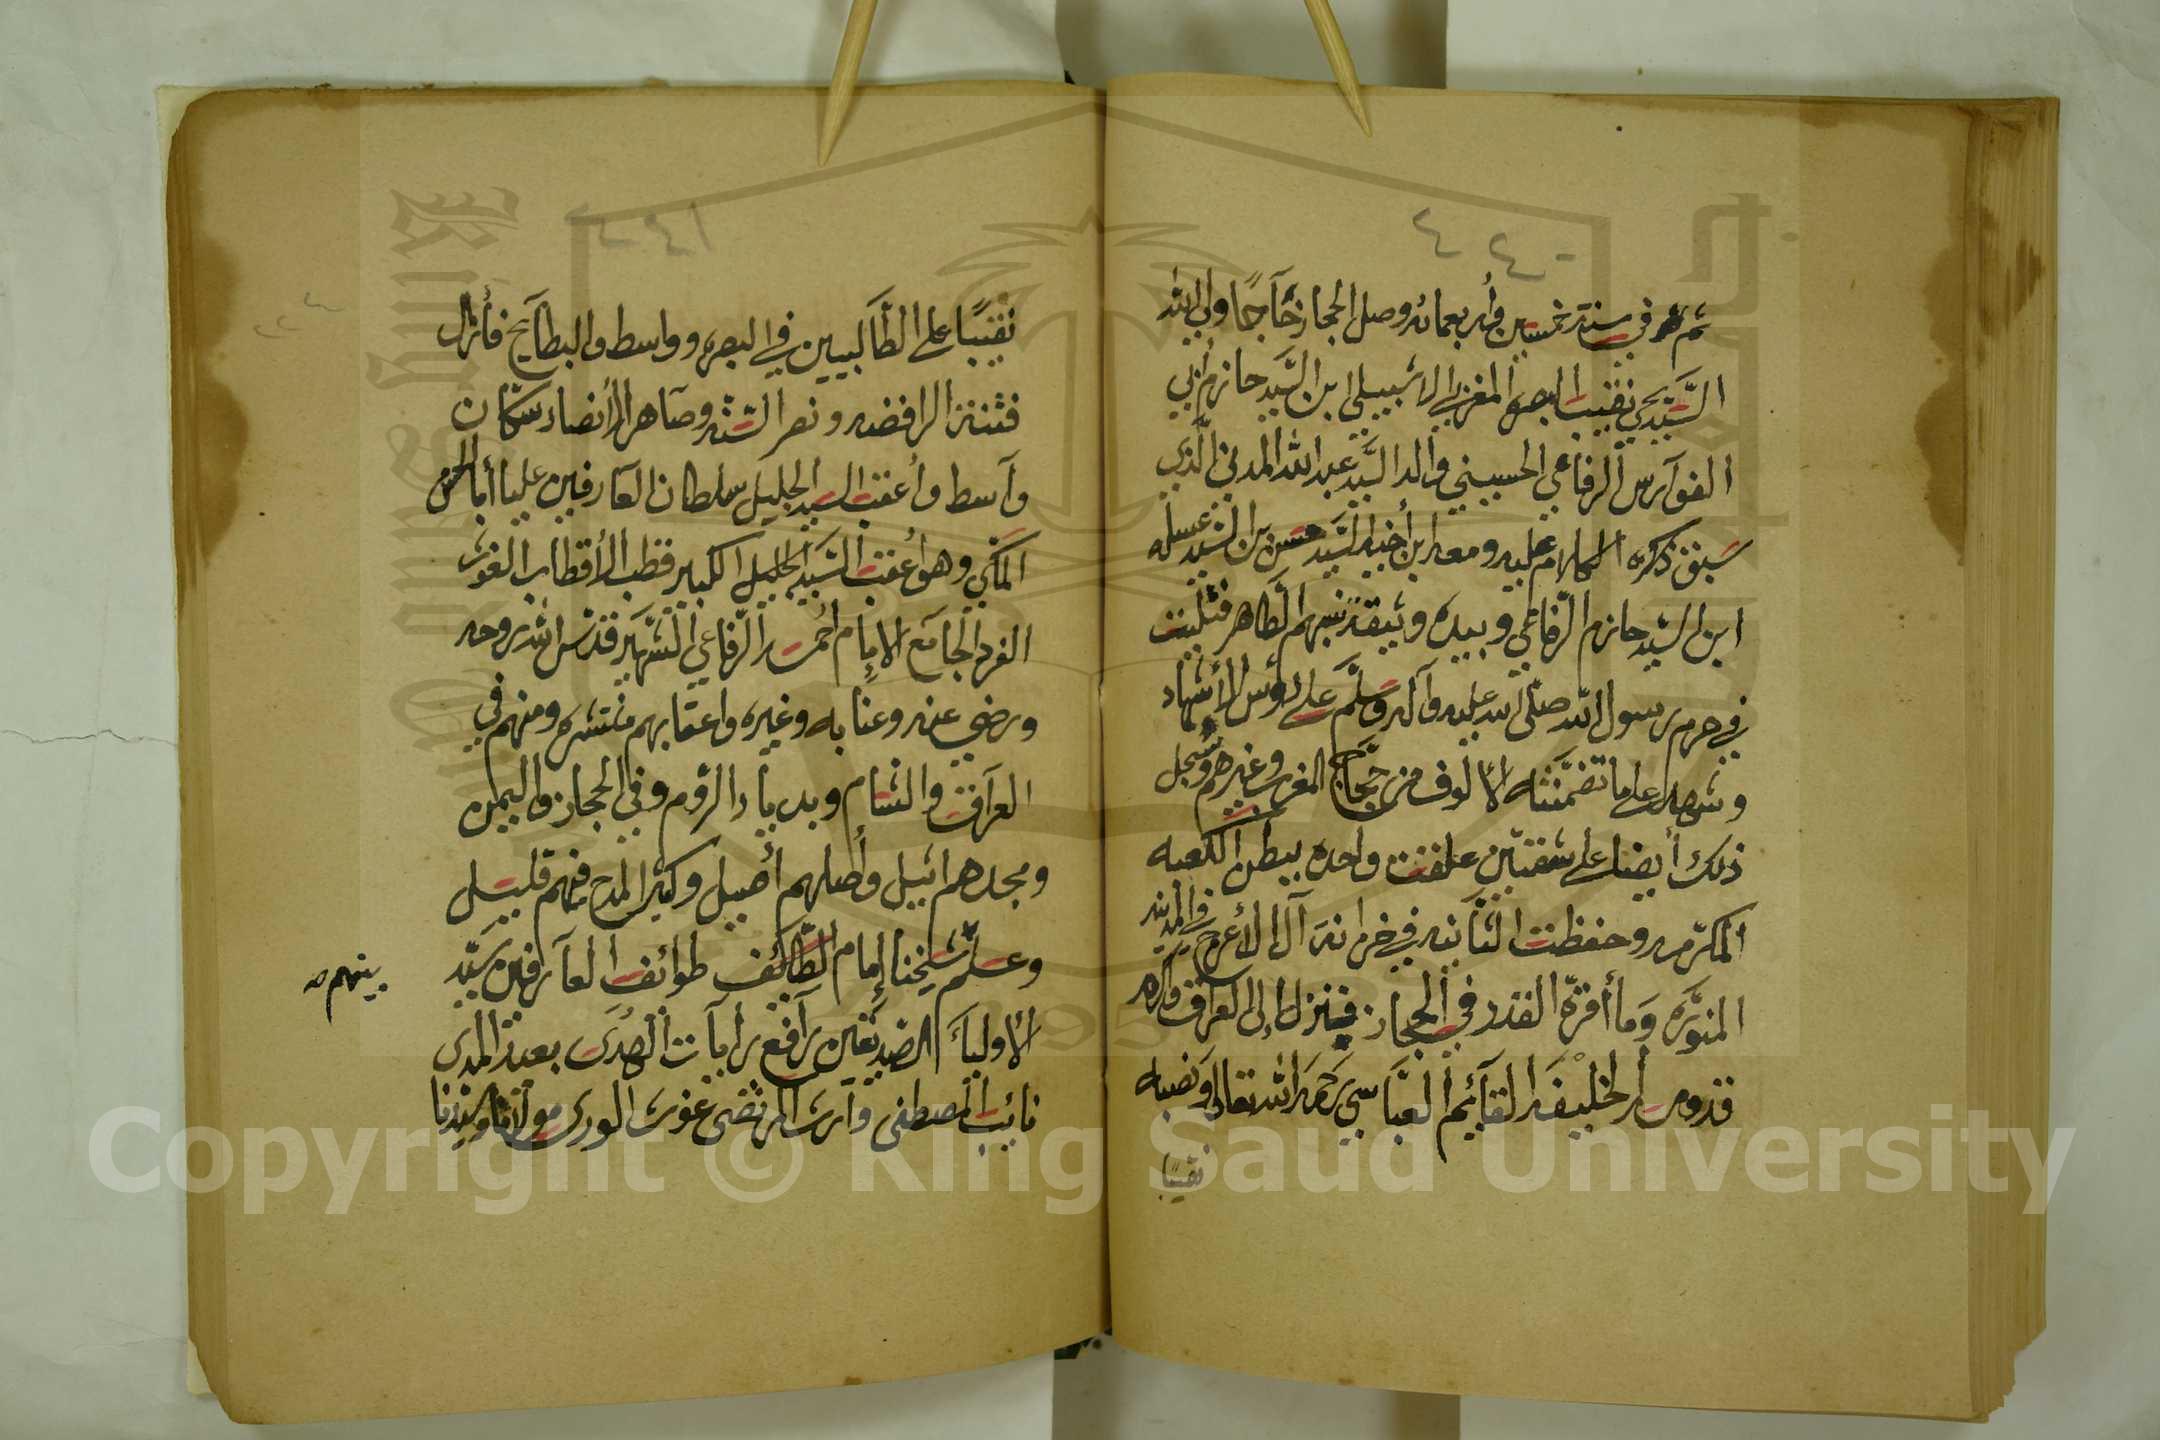 ٢٤٠
ثم في سنة خمسين وأربعمائة وصل الحجاز حآجًا ولي الله
السَّيّد يحيى نقيب البصرة المغربي الاشبيلي ابن السَّيد حازم أبي
الفوآرس الرفاعي الحسيني والد السَّيد عبد الله المدني الَّذي
سَبق ذكره الكلام عليه ومعه ابن أخيه السَّيد حسن بن السَّيد عسله
ابن السَّيد حازم الرّفاعي وبيده وثيقة نسبهم الطَّاهر فتليت
في حرم رسول الله صلّى الله عليه وآله وسلَّم على رؤس الأشهاد
وشهد على ما تضمَّنته الألوف من حجَّاج المغرب وغيرهم وسجل
ذلك أيضا على شقتين علقت واحدة ببطن الكعبه
المكرّمه وحفظت الثَّانيه في خزانة آل الأعرج في المدينه
المنوَّره وَما أقرّه القدر في الحجاز فنزل إلى العرآق وأكرم
قدومه الخليفة القآئيم العبَّاسي رَحمَه الله تعالى وَنصبه
نقيبًا
٢٤١
نقيبًا على الطَّالبيين في البصره وواسط والبطآيح فأزال
فتنة الرافضه ونصر السّنّه وصآهر الأنصاء سكّان
وآسط وأعقب السيد الجليل سلطان العآرفين عليا أبا الحسن
المكّي وهو أعقب السَّيّد الجليل الكبير قطب الأقطاب الغوث
الفرد الجآمع الإمام أحمد الرّفاعي الشَّهير قدّس الله روحه
ورضي عنه وعنَّا به وغيره واعقابهم منتشره ومنهم في
العرآق والشام وبديار الرّوم وفي الحجاز واليمن
ومجدهم اثيل وأصلهم أصيل وكثير المدح فيهم قليل
وعلَّم شيخنا إمام الطَّائف طوائف العآرفين سَيّد
بينهم صح
الأوليآءَ الصدّيقين رآفع رأيات الهُدَى بعيد المدى
نائب المصطفى وآرث المرتضى غوث الورى مولآنا وسيّدنا